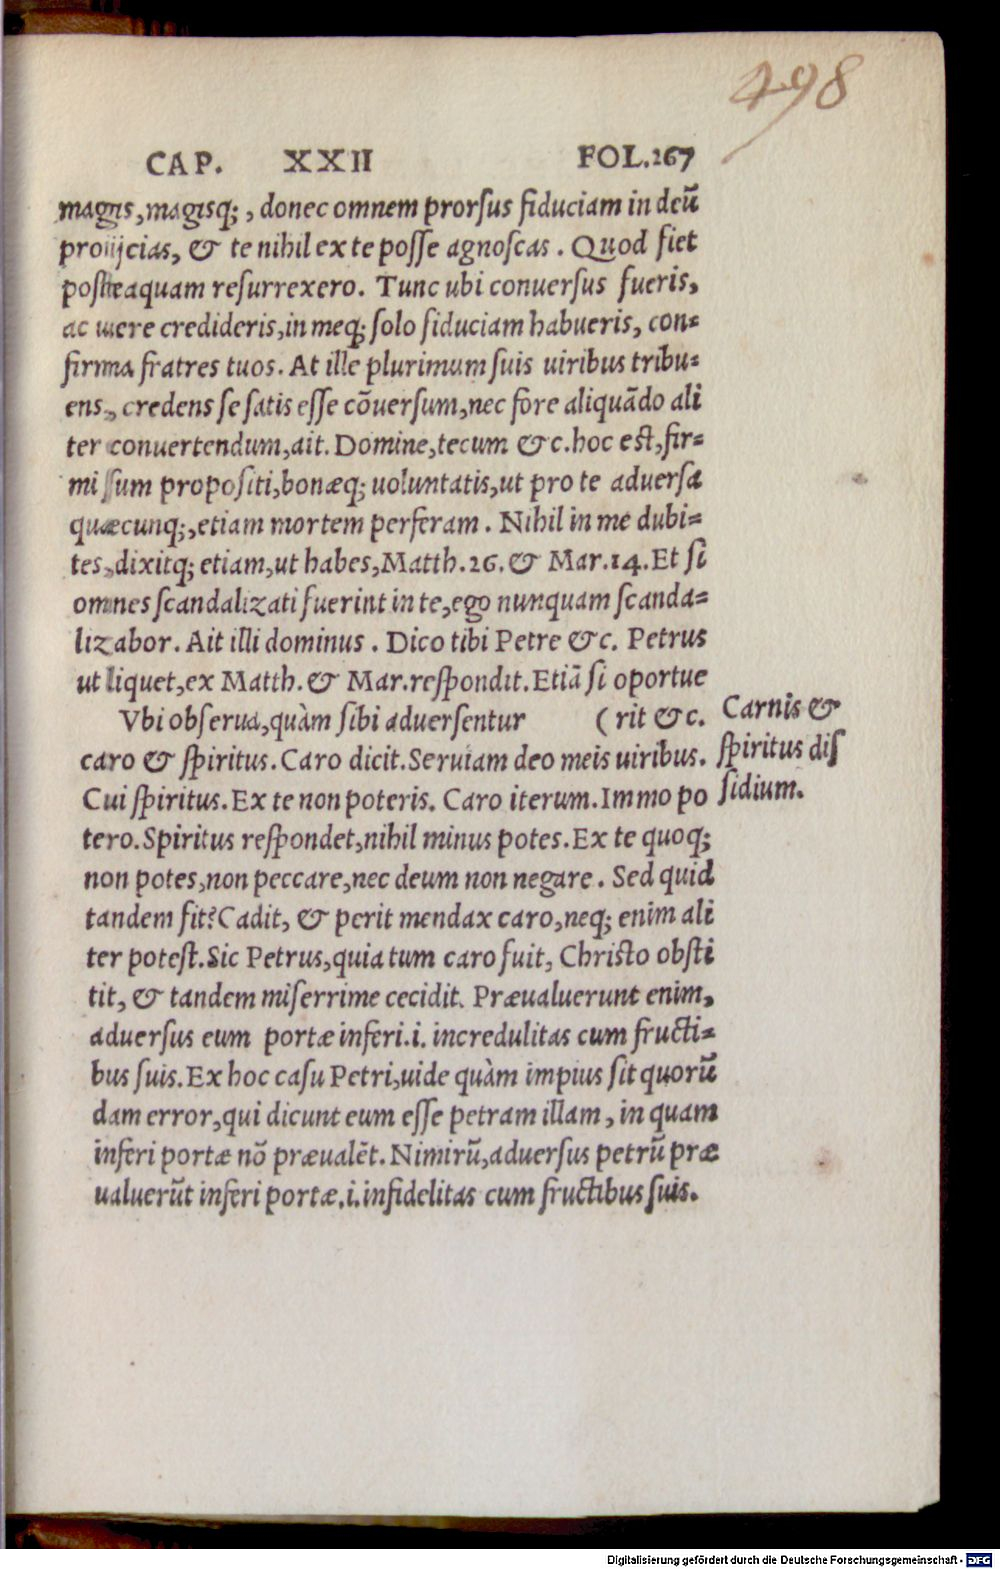 498
CAP. XXII FOL.267
magis, magisq;, donec omnem prorsus fiduciam in deū
proijcias, & te nihil ex te posse agnoscas. Quod fiet
posteaquam resurrexero. Tunc ubi conuersus fueris,
ac uere credideris, in meq; solo fiduciam habueris, con=
firma fratres tuos. At ille plurimum suis uiribus tribu=
ens, credens se satis esse cōuersum, nec fore aliquādo ali
ter conuertendum, ait. Domine, tecum &c. hoc est, fir=
missum propositi, bonæq; uoluntatis, ut pro te aduersa
quæcunq;, etiam mortem perferam. Nihil in me dubi=
tes, dixitq; etiam, ut habes, Matth. 26. & Mar. 14. Et si
omnes scandalizati fuerint in te, ego nunquam scanda=
lizabor. Ait illi dominus. Dico tibi Petre &c. Petrus
ut liquet, ex Matth. & Mar. respondit. Etiā si oportue
Vbi obserua, quàm sibi aduersentur (rit &c.
caro & spiritus. Caro dicit. Seruiam deo meis uiribus.
Cui spiritus. Ex te non poteris. Caro iterum. Immo po
tero. Spiritus respondet, nihil minus potes. Ex te quoq;
non potes, non peccare, nec deum non negare. Sed quid
tandem fit? Cadit, & perit mendax caro, neq; enim ali
ter potest. Sic Petrus, quia tum caro fuit, Christo obsti
tit, & tandem miserrime cecidit. Præualuerunt enim,
aduersus eum portæ inferi. i. incredulitas cum fructi=
bus suis. Ex hoc casu Petri, uide quàm impius sit quorū
dam error, qui dicunt eum esse petram illam, in quam
inferi portæ nō præualēt. Nimirū, aduersus petrū præ
ualuerūt inferi portæ. i. infidelitas cum fructibus suis.
Carnis &
spiritus dis
sidium.
Digitalisierung gefördert durch die Deutsche Forschungsgemeinschaft - DFG